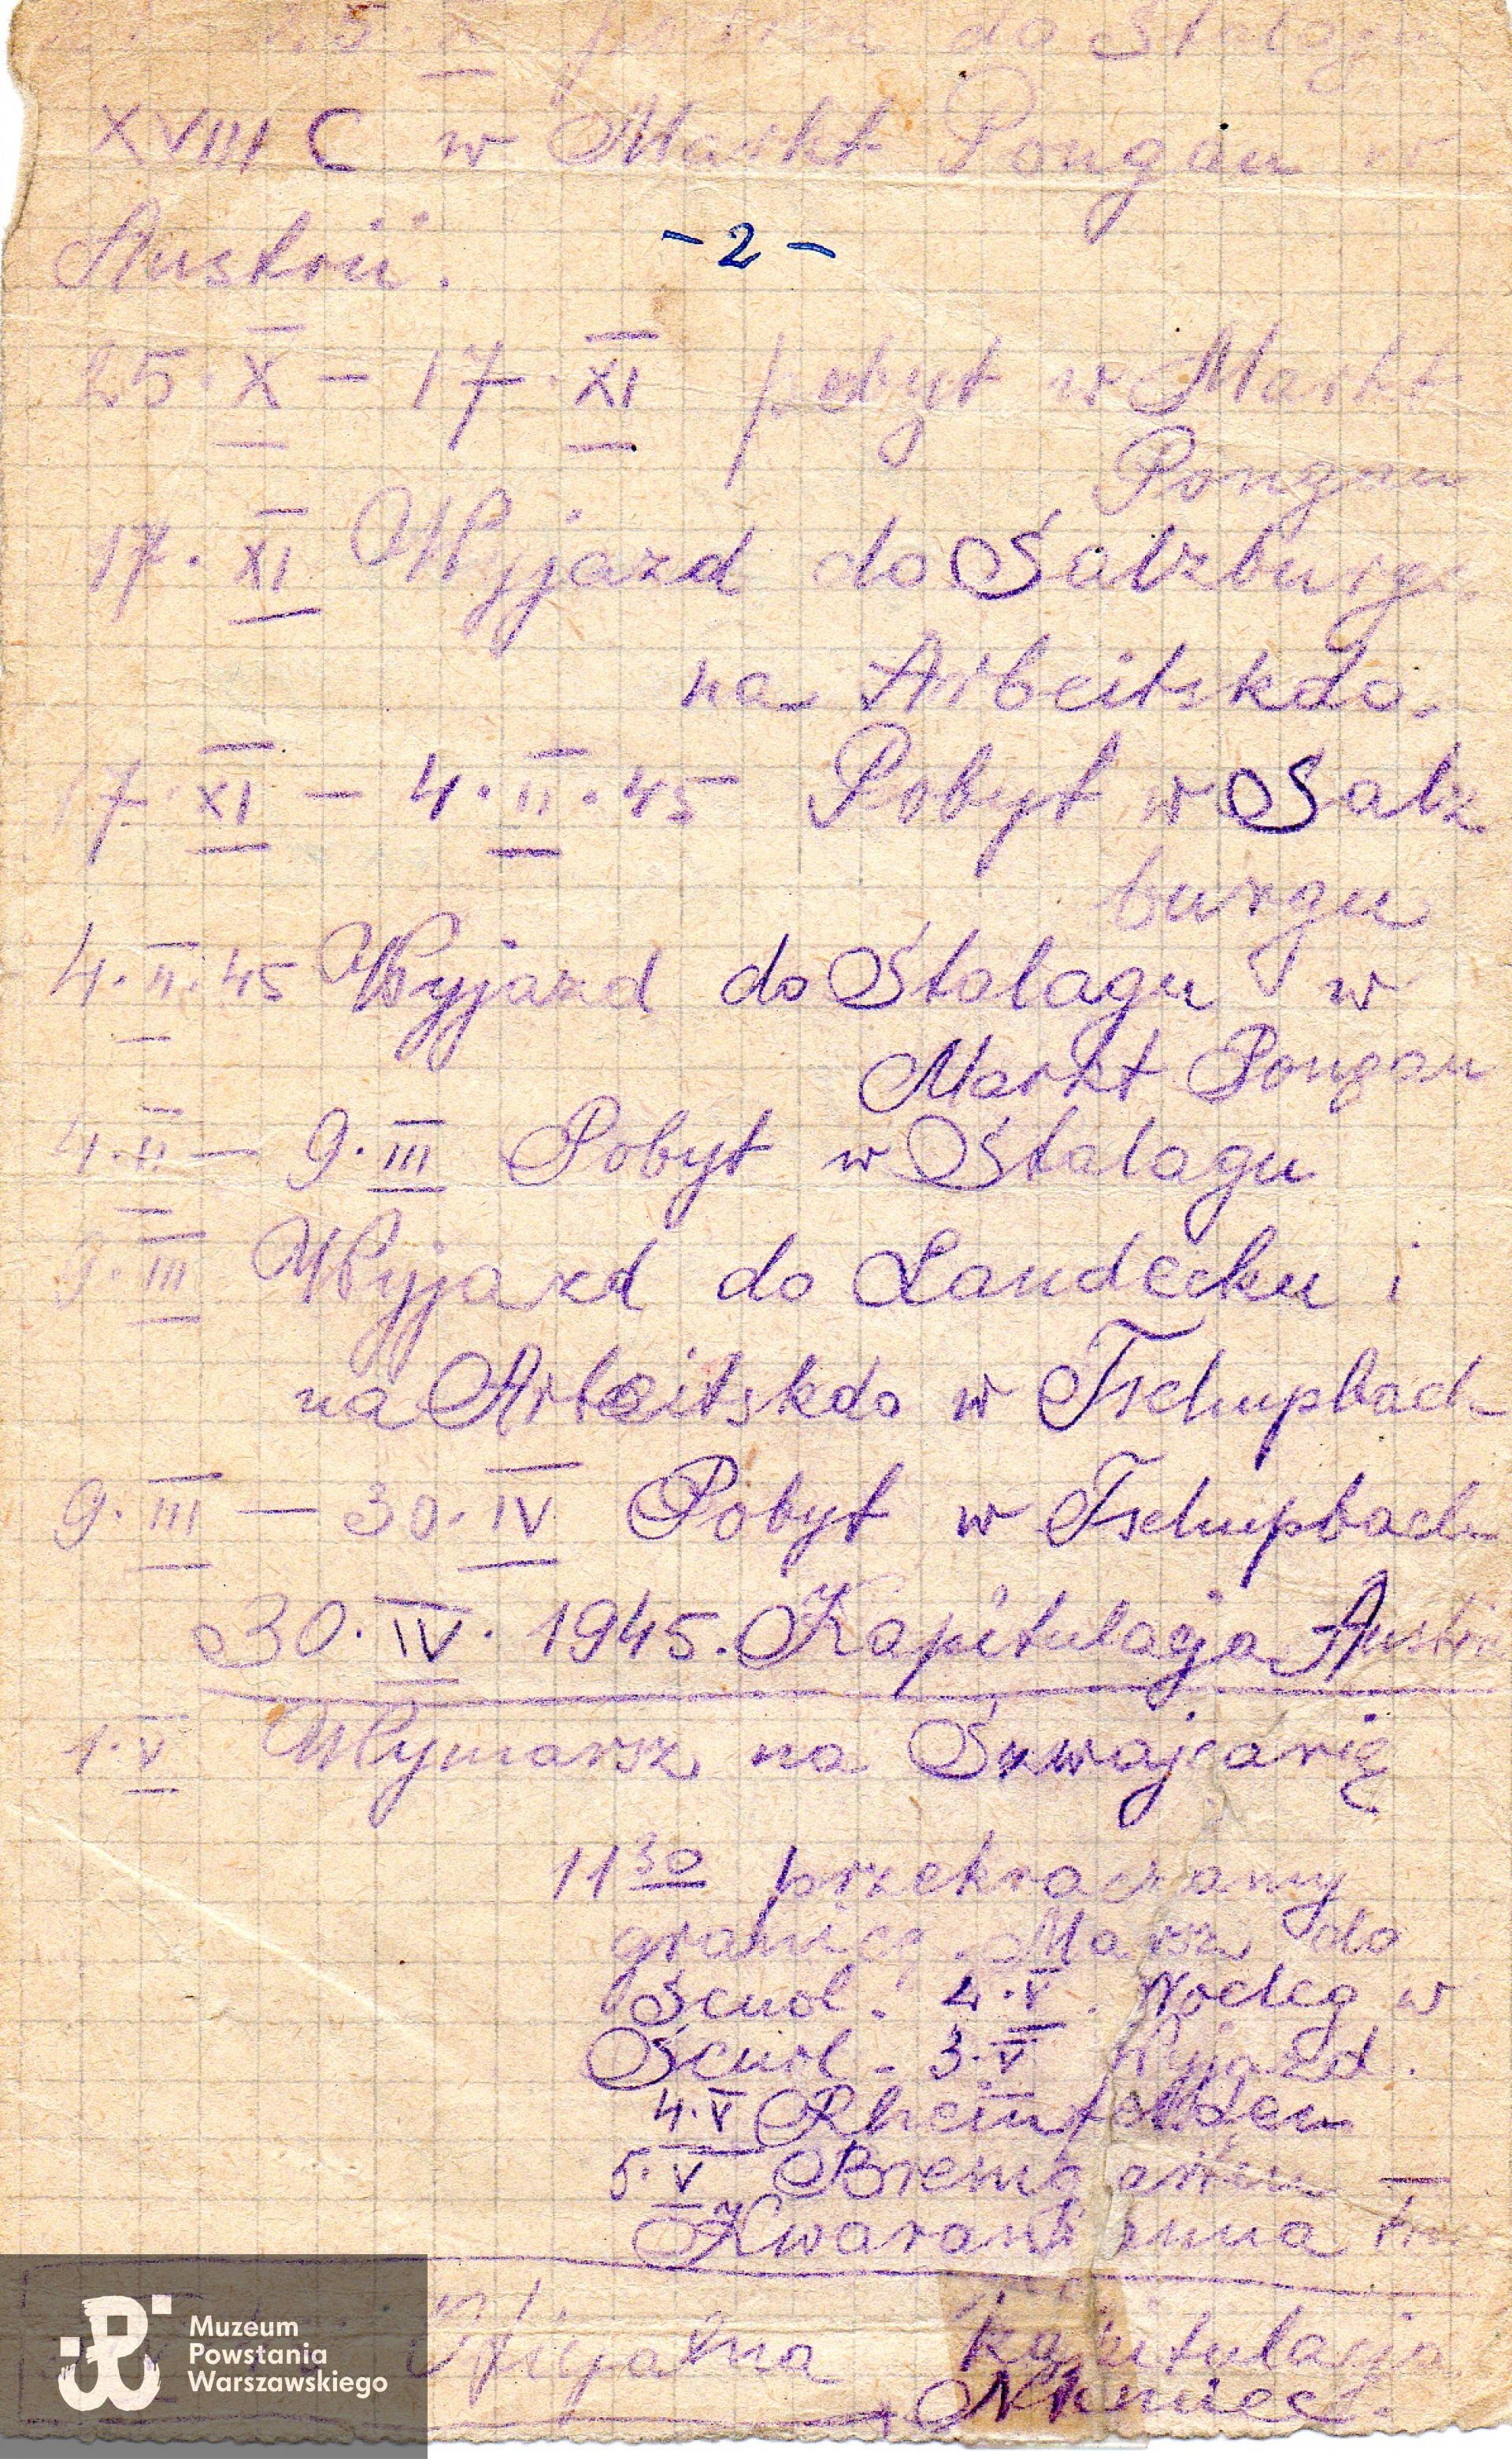 5. X do Stalagu
XVIII C w Markt Pongau w
Austrii.
- 2 -
25. X — 17. XI pobyt w Markt
Pongau
17. XI Wyjazd do Salzburgu
na Arbeitskdo.
17. XI — 4. II. 45 Pobyt w Salz
burgu
4. II. 45 Wyjazd do Stalagu w
Markt Pongau
4. II — 9. III Pobyt w Stalagu
9. III Wyjazd do Landecku i
na Arbeitskdo w Tschupbach
9. III — 30. IV Pobyt w Tschupbach
30. IV. 1945. Kapitulacja Austrii
1. V Wymarsz na Szwajcarię
11 30 przekraczamy
granicę. Marsz do
Scuol. V. Nocleg w
Scuol - 3. V Wyjazd.
4. V Rheinfelden
5. V Bremgarten —
Kwarantanna
Oficjalna kapitulacja
Niemiec.
Muzeum
Powstania
Warszawskiego